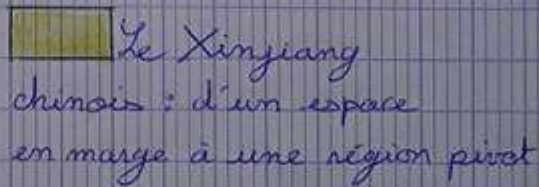 Le Xinjiang
chinois : d'un espace
en marge à une région pivot